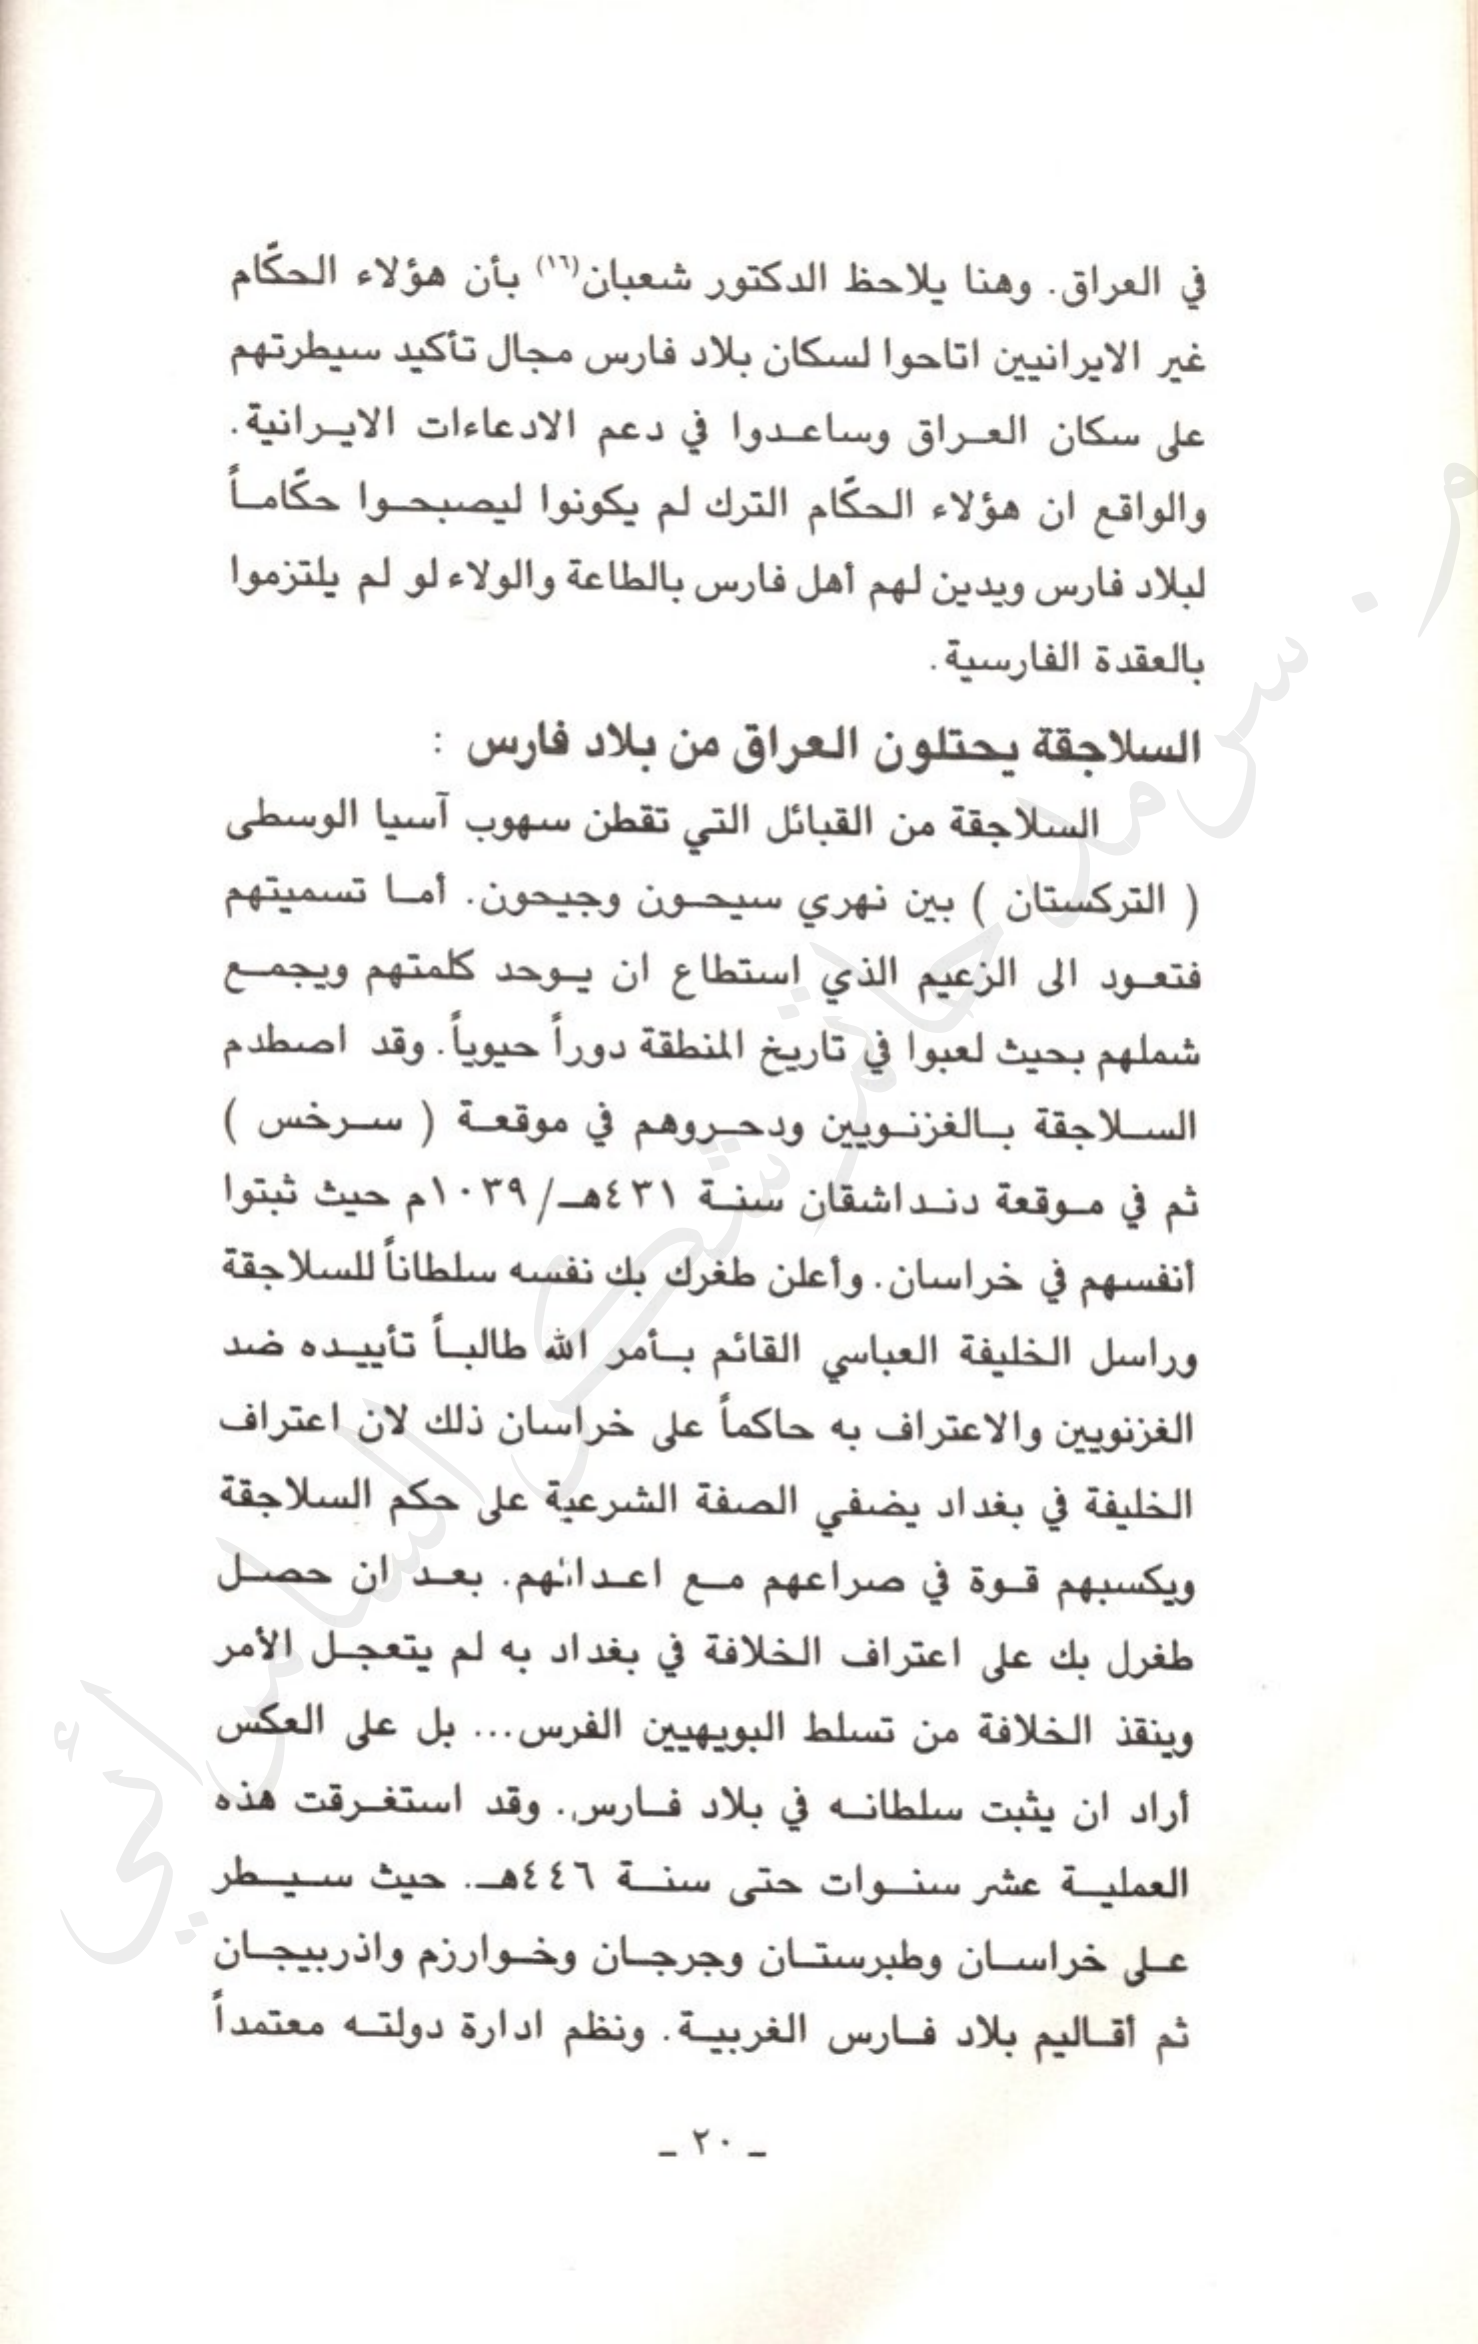 في العراق. وهنا يلاحظ الدكتور شعبان(١٦) بأن هؤلاء الحكّام
غير الايرانيين اتاحوا لسكان بلاد فارس مجال تأكيد سيطرتهم
على سكان العراق وساعدوا في دعم الادعاءات الايرانية.
والواقع ان هؤلاء الحكّام الترك لم يكونوا ليصبحوا حكّاماً
لبلاد فارس ويدين لهم أهل فارس بالطاعة والولاء لو لم يلتزموا
بالعقدة الفارسية.
السلاجقة يحتلون العراق من بلاد فارس :
السلاجقة من القبائل التي تقطن سهوب آسيا الوسطى
( التركستان ) بين نهري سيحون وجيحون. أما تسميتهم
فتعود الى الزعيم الذي استطاع ان يوحد كلمتهم ويجمع
شملهم بحيث لعبوا في تاريخ المنطقة دوراً حيوياً. وقد اصطدم
السلاجقة بالغزنويين ودحروهم في موقعة ( سرخس )
ثم في موقعة دنداشقان سنة ٤٣١هـ/١٠٣٩م حيث ثبتوا
أنفسهم في خراسان. وأعلن طغرك بك نفسه سلطاناً للسلاجقة
وراسل الخليفة العباسي القائم بأمر الله طالباً تأييده ضد
الغزنويين والاعتراف به حاكماً على خراسان ذلك لان اعتراف
الخليفة في بغداد يضفي الصفة الشرعية على حكم السلاجقة
ويكسبهم قوة في صراعهم مع اعدائهم. بعد ان حصل
طغرل بك على اعتراف الخلافة في بغداد به لم يتعجل الأمر
وينقذ الخلافة من تسلط البويهيين الفرس... بل على العكس
أراد ان يثبت سلطانه في بلاد فارس. وقد استغرقت هذه
العملية عشر سنوات حتى سنة ٤٤٦هـ. حيث سيطر
على خراسان وطبرستان وجرجان وخوارزم واذربيجان
ثم أقاليم بلاد فارس الغربية. ونظم ادارة دولته معتمداً
ـ ٢٠ ـ
م. سرمد حاتم شكر السامرائي